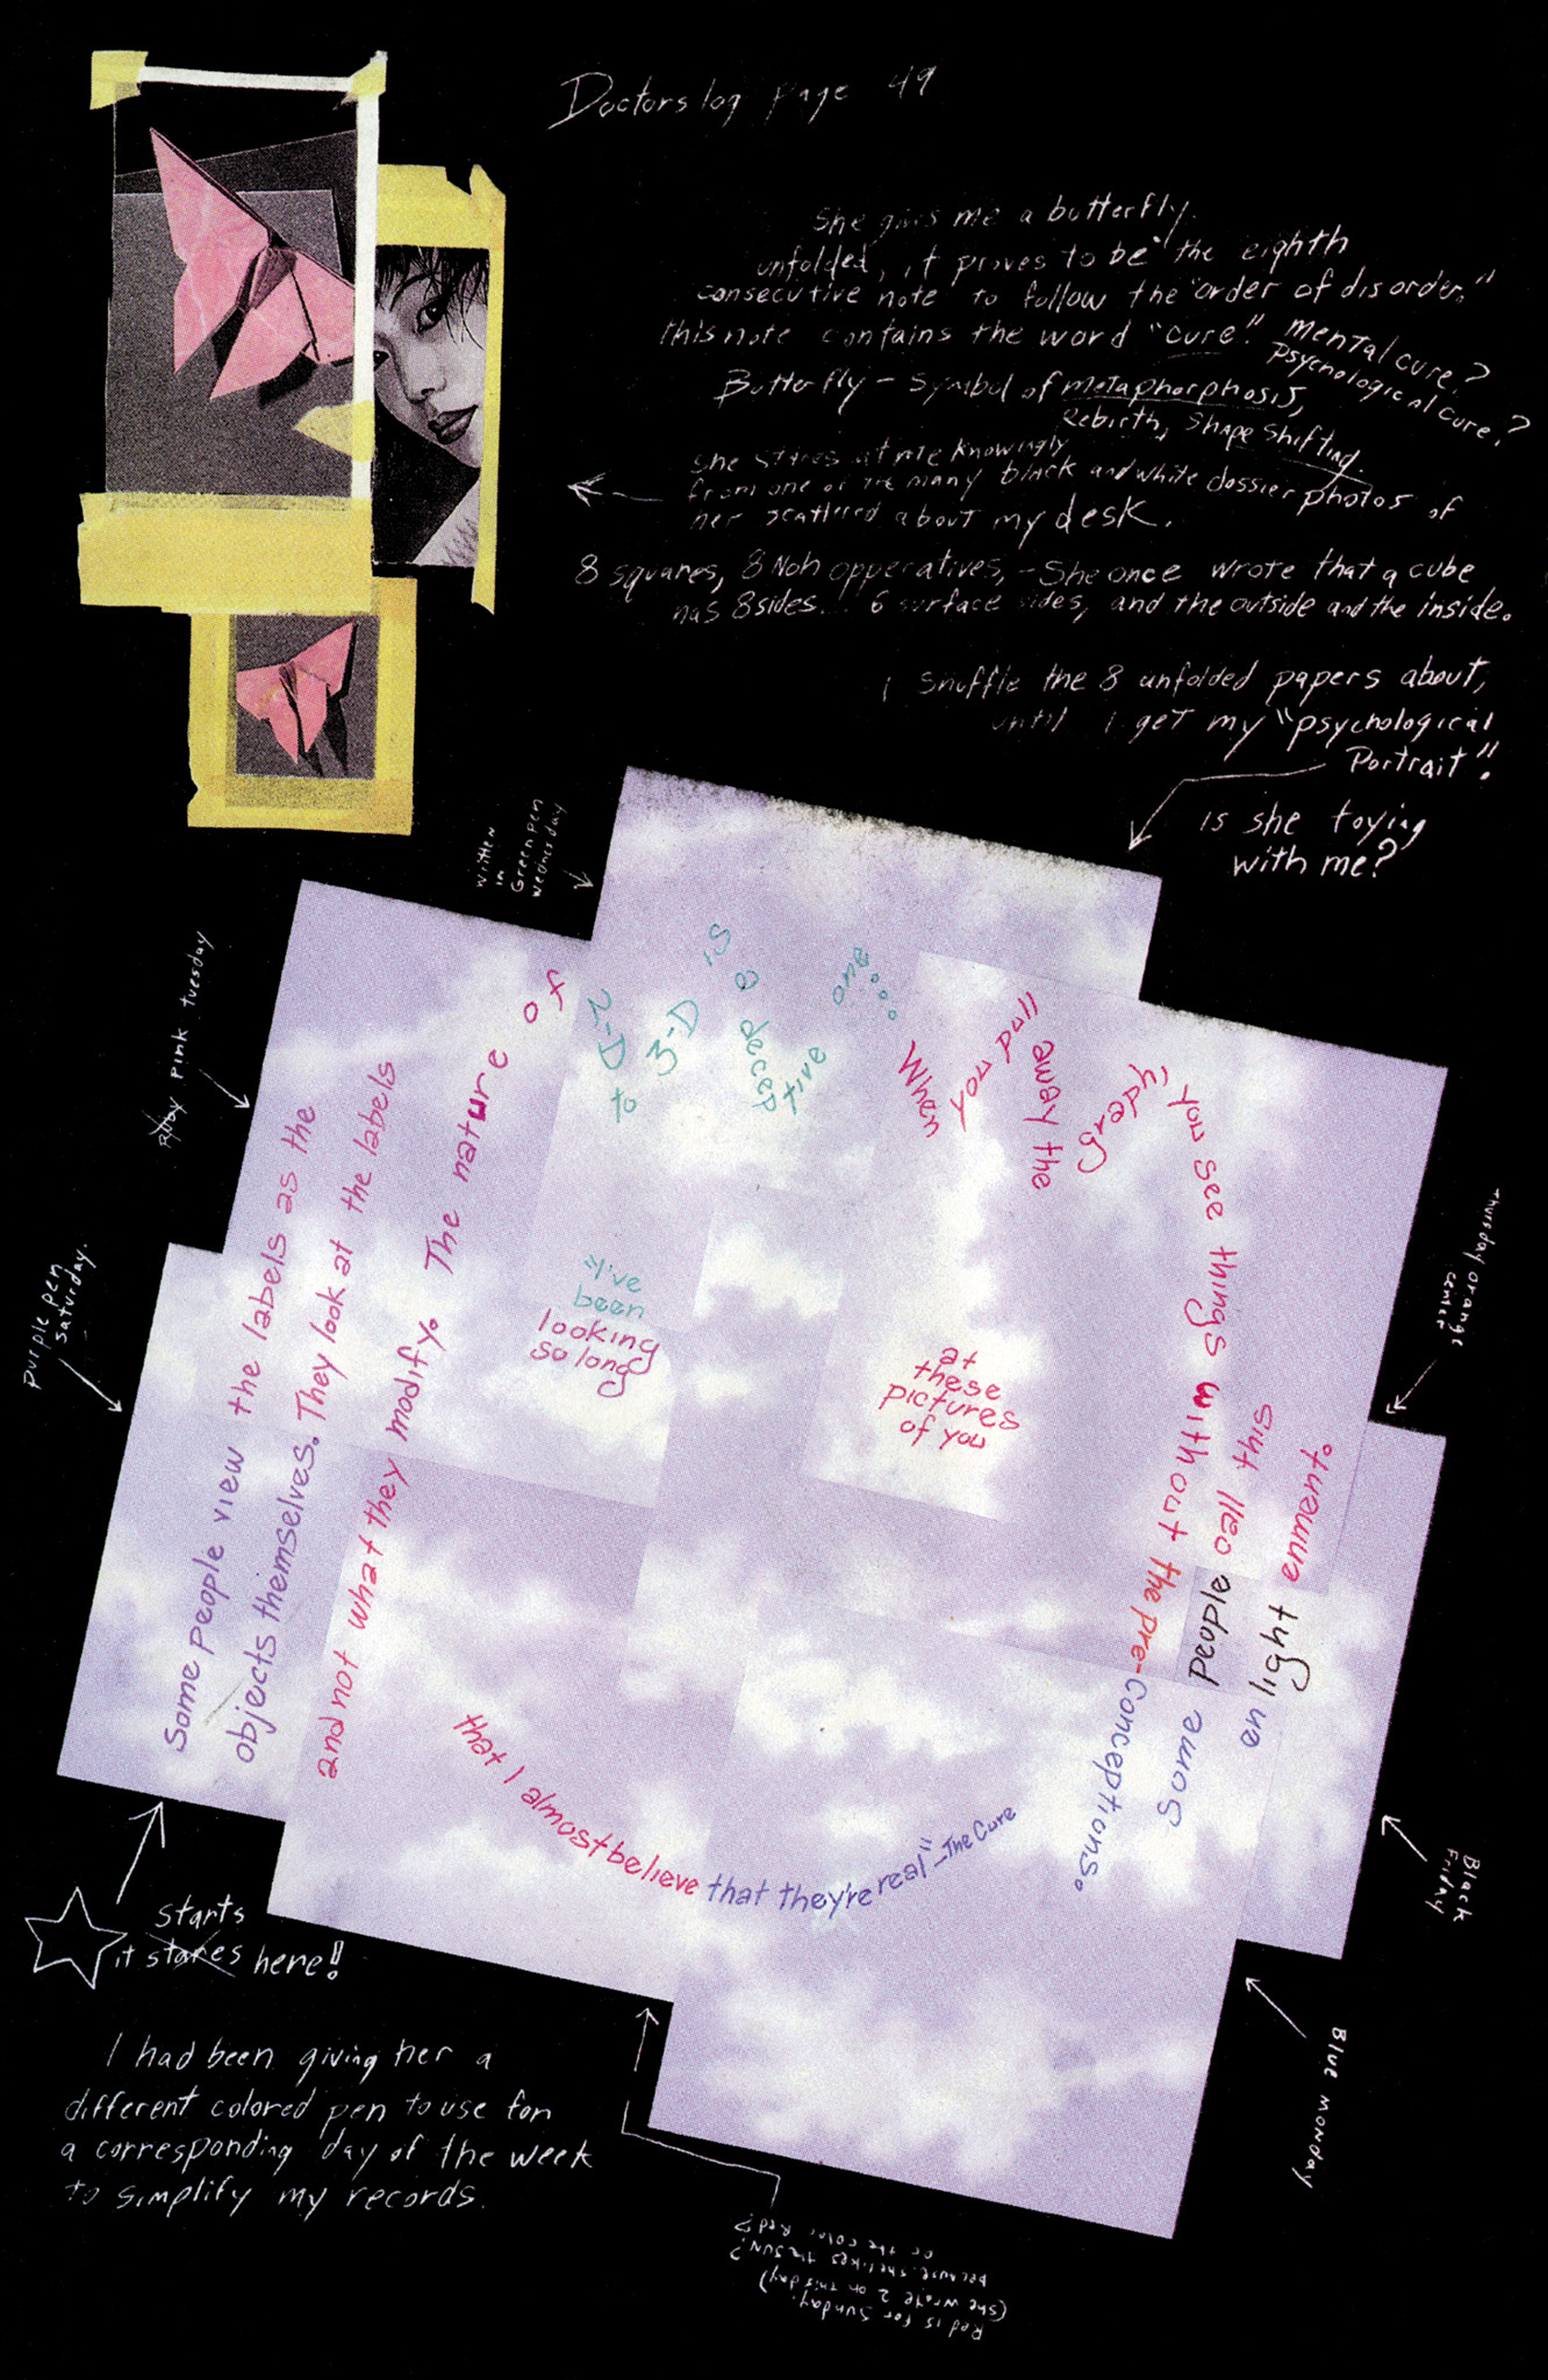 Doctors log page 49
She gives me a butterfly.
unfolded, it proves to be the eighth
consecutive note to follow the "order of disorder."
this note contains the word "cure". mental cure?
psychological cure?
Butterfly - symbol of metaphorphosis,
Rebirth, shape shifting.
she stares at me knowingly
from one of the many black and white dossier photos of
her scattered about my desk.
8 squares, 8 Noh opperatives, - She once wrote that a cube
has 8 sides... 6 surface sides, and the outside and the inside.
I shuffle the 8 unfolded papers about,
until I get my "psychological
Portrait".
is she toying
with me?
written
in
Green pen
wednesday
pink tuesday
purple pen
saturday.
Some people view the labels as the
objects themselves. They look at the labels
and not what they modify. The nature of
2-D
to
3-D
is
a
decep
tive
one....
When
you pull
away the
graph,
you see things without the pre-conceptions.
Some people call this
enlight enment.
"I've
been
looking
so long
at
these
pictures
of you
that I almost believe that they're real" - The Cure
Thursday orange
center
Black
Friday
Blue monday
starts
it stares here!
I had been giving her a
different colored pen to use for
a corresponding day of the week
to simplify my records.
Red is for Sunday.
(she wrote 2 on this day)
because she likes the SUN?
or the color Red?